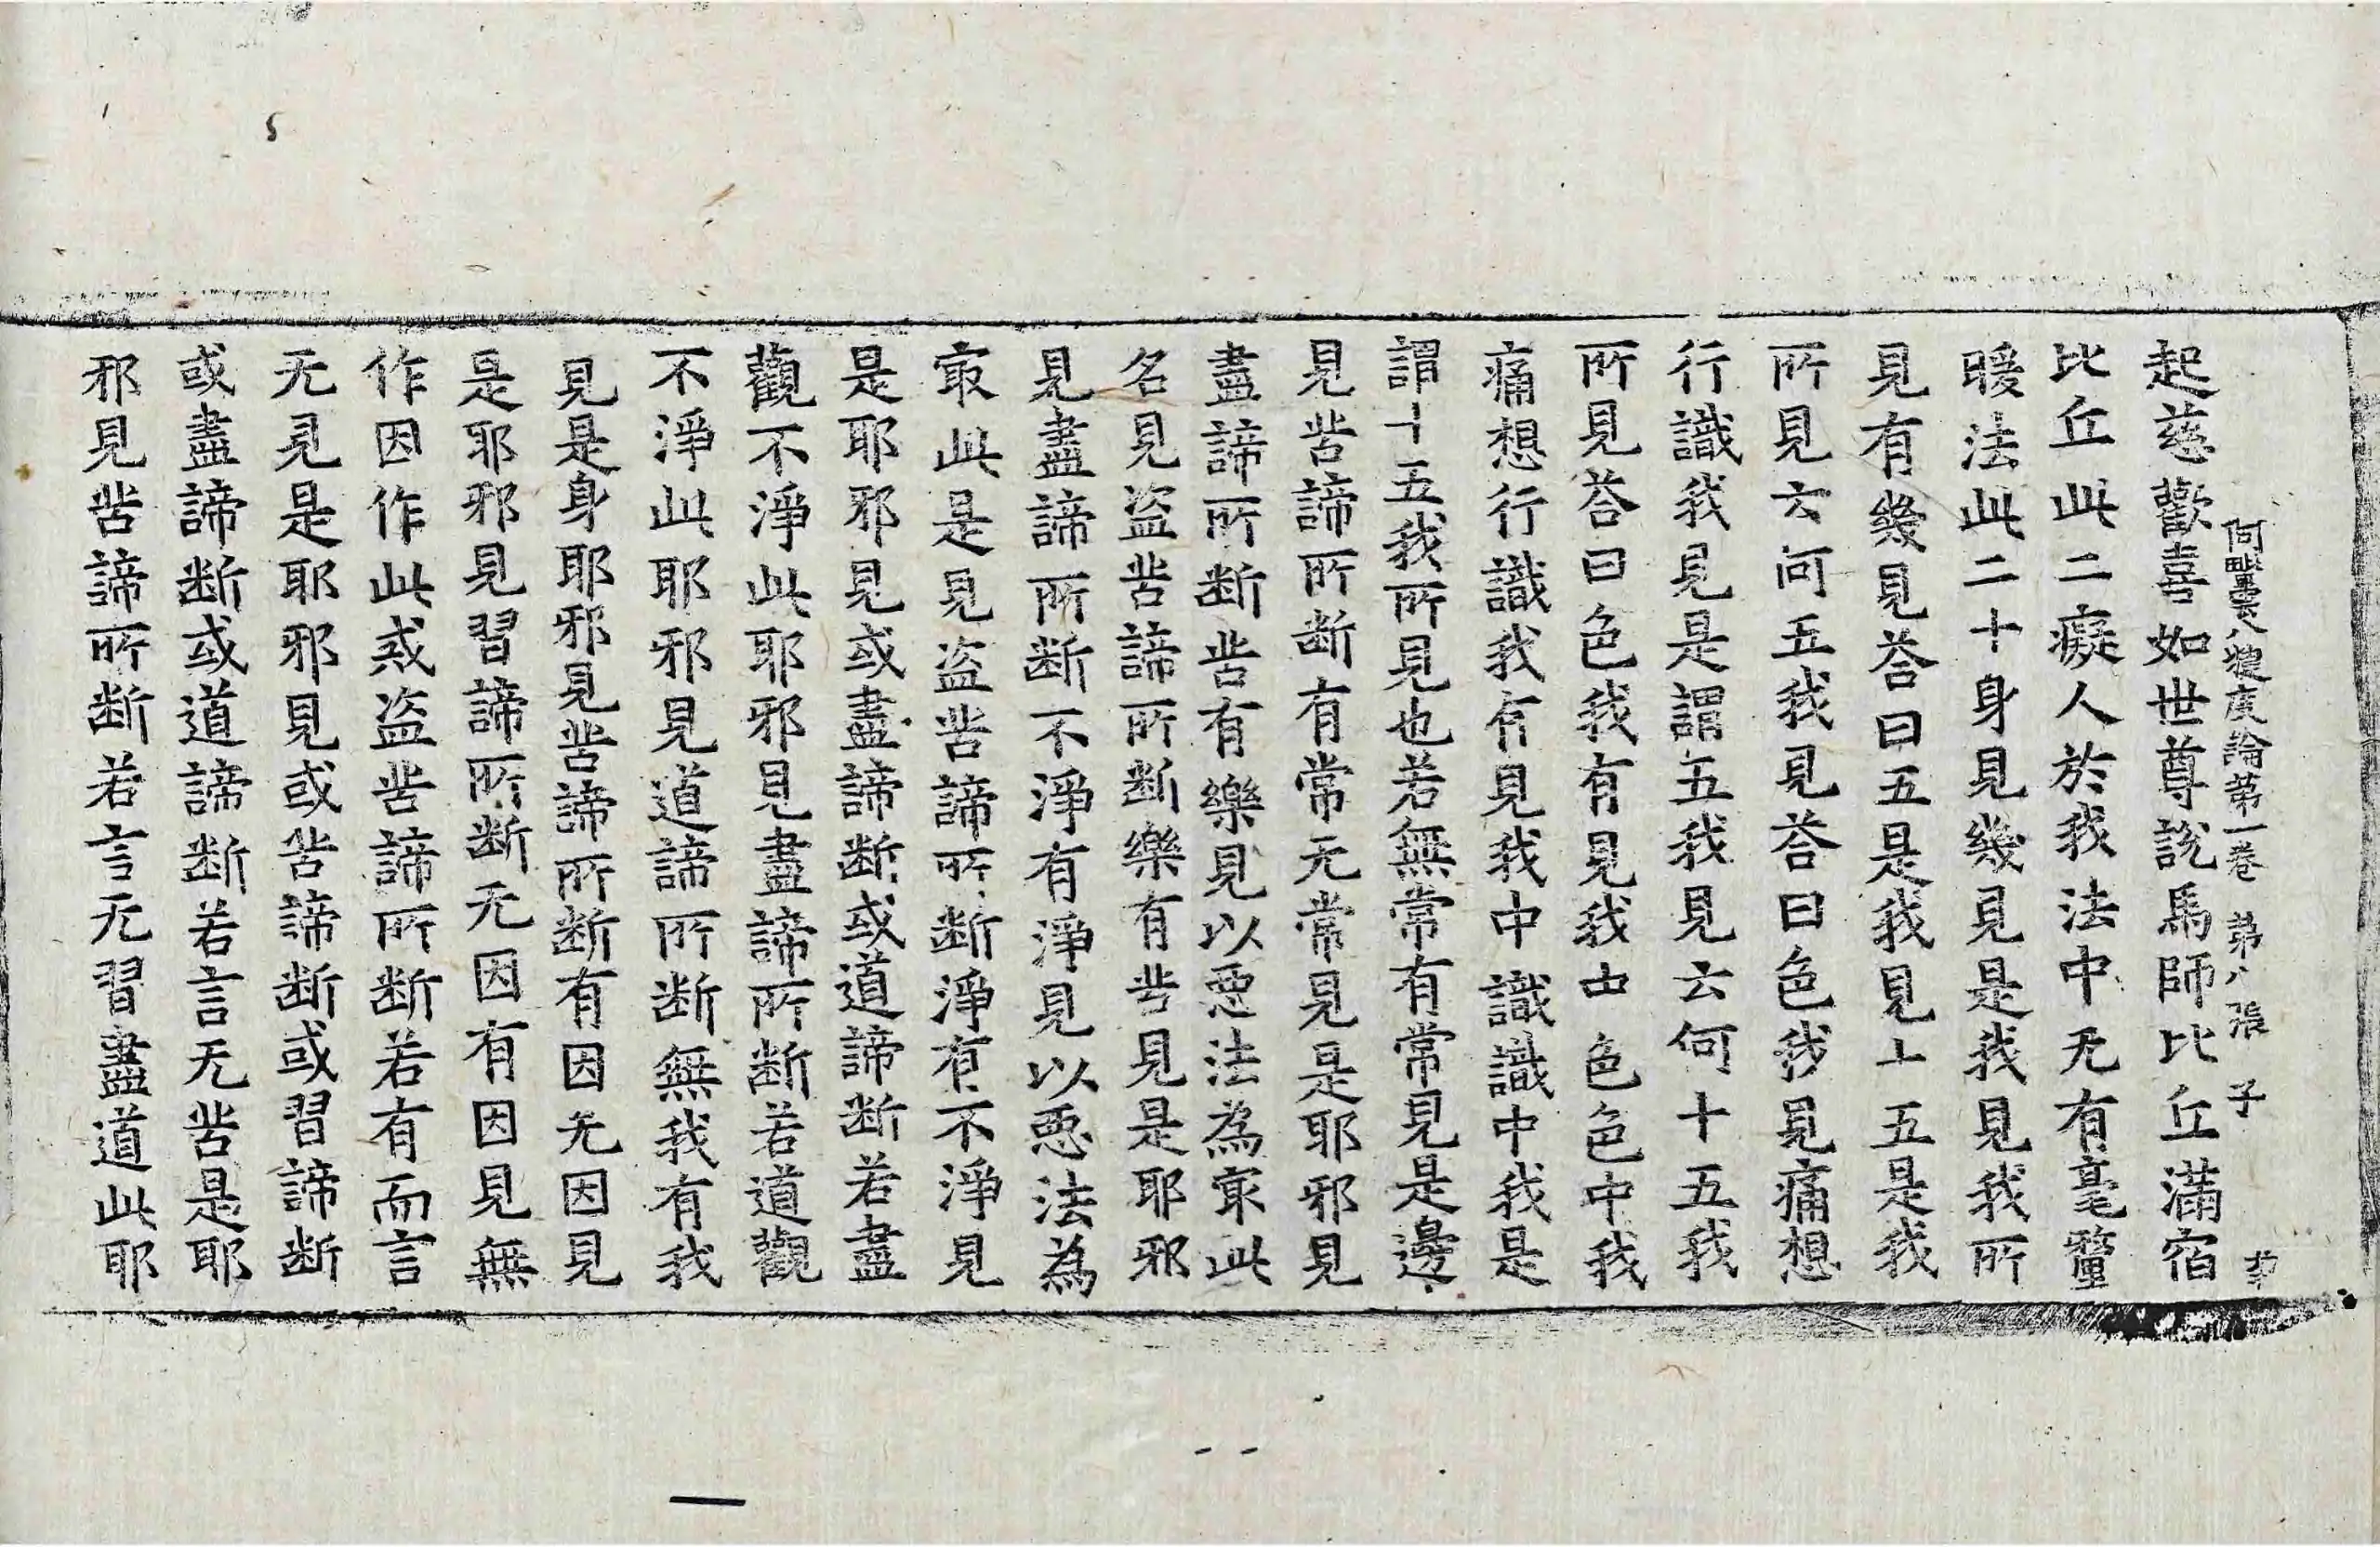 阿毗曇八犍度論苐一卷 苐八張 子
起慈歡喜如世尊說馬師比丘滿宿
比丘此二癡人於我法中无有毫釐
暖法此二十身見幾見是我見我所
見有幾見荅曰五是我見十五是我
所見云何五我見荅曰色我見痛想
行識我見是謂五我見云何十五我
所見荅曰色我有見我中色色中我
痛想行識我有見我中識識中我是
謂十五我所見也若無常有常見是邊
見苦諦所断有常无常見是耶邪見
盡諦所断苦有樂見以惡法為㝡此
名見盗苦諦所断樂有苦見是耶邪
見盡諦所断不淨有淨見以惡法為
㝡此是見盗苦諦所断淨有不淨見
是耶邪見或盡諦断或道諦断若盡
觀不淨此耶邪見盡諦所断若道觀
不淨此耶邪見道諦所断無我有我
見是身耶邪見苦諦所断有因无因見
是耶邪見習諦所断无因有因見無
作因作此戒盗苦諦所断若有而言
无見是耶邪見或苦諦断或習諦断
或盡諦断或道諦断若言无苦是耶
邪見苦諦所断若言无習盡道此耶